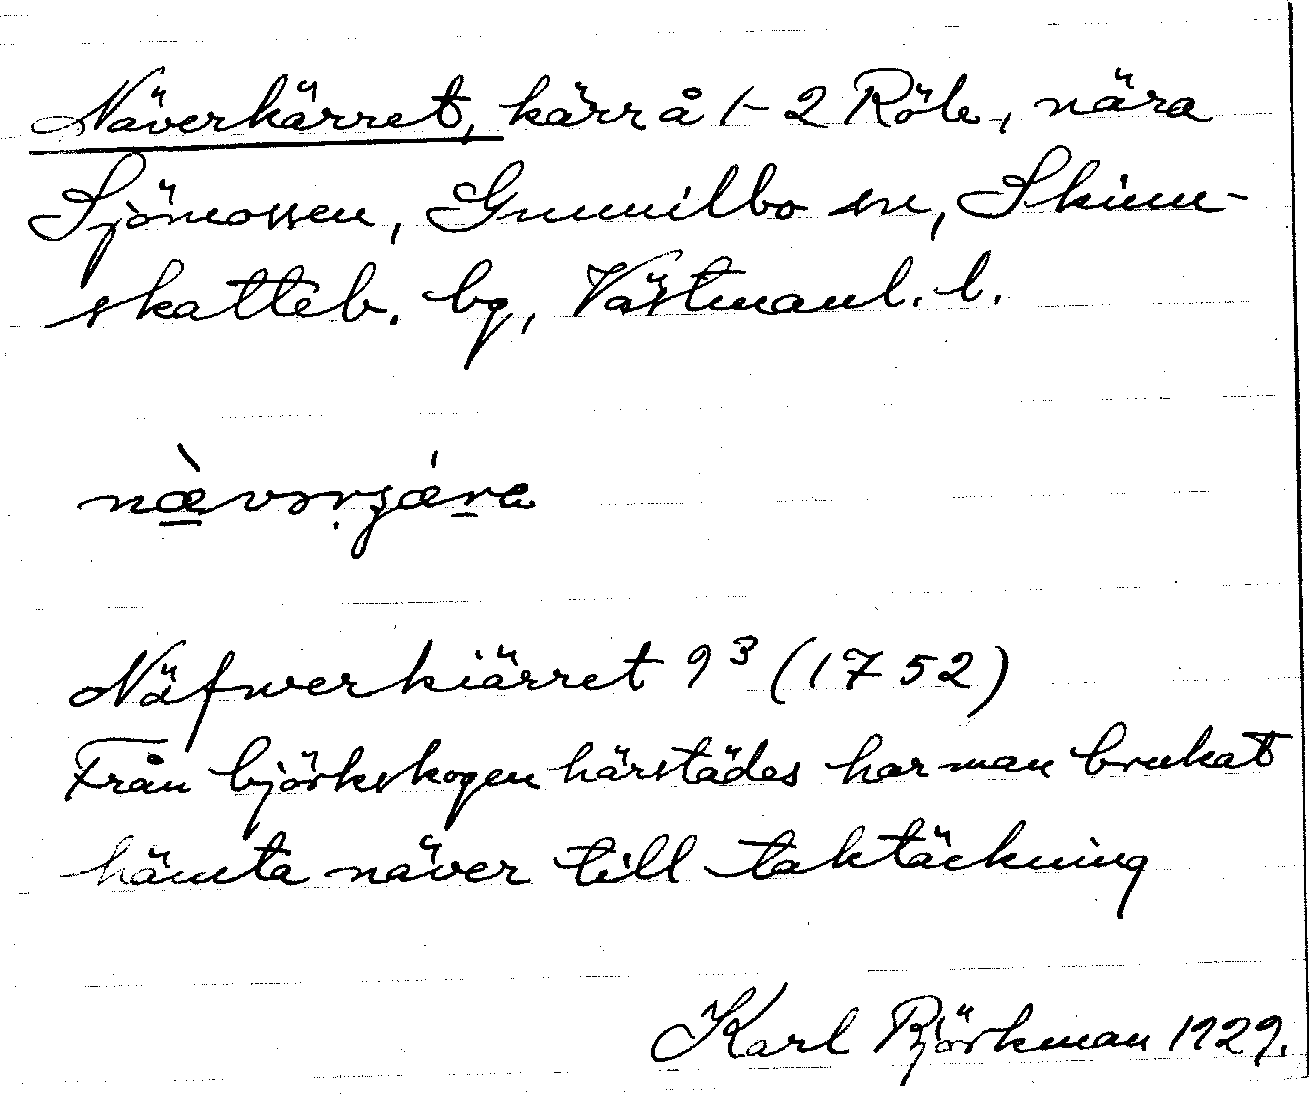 Näverkärret, kärr å 1-2 Röle, nära
Sjömossen, Gunnilbo sn, Skinn-
skatteb. bg, Västmanl. l.
nævərʂæra
Näfwerkiärret 9³ (1752)
Från björkskogen härstädes har man brukat
hämta näver till taktäckning
Karl Björkman 1929.